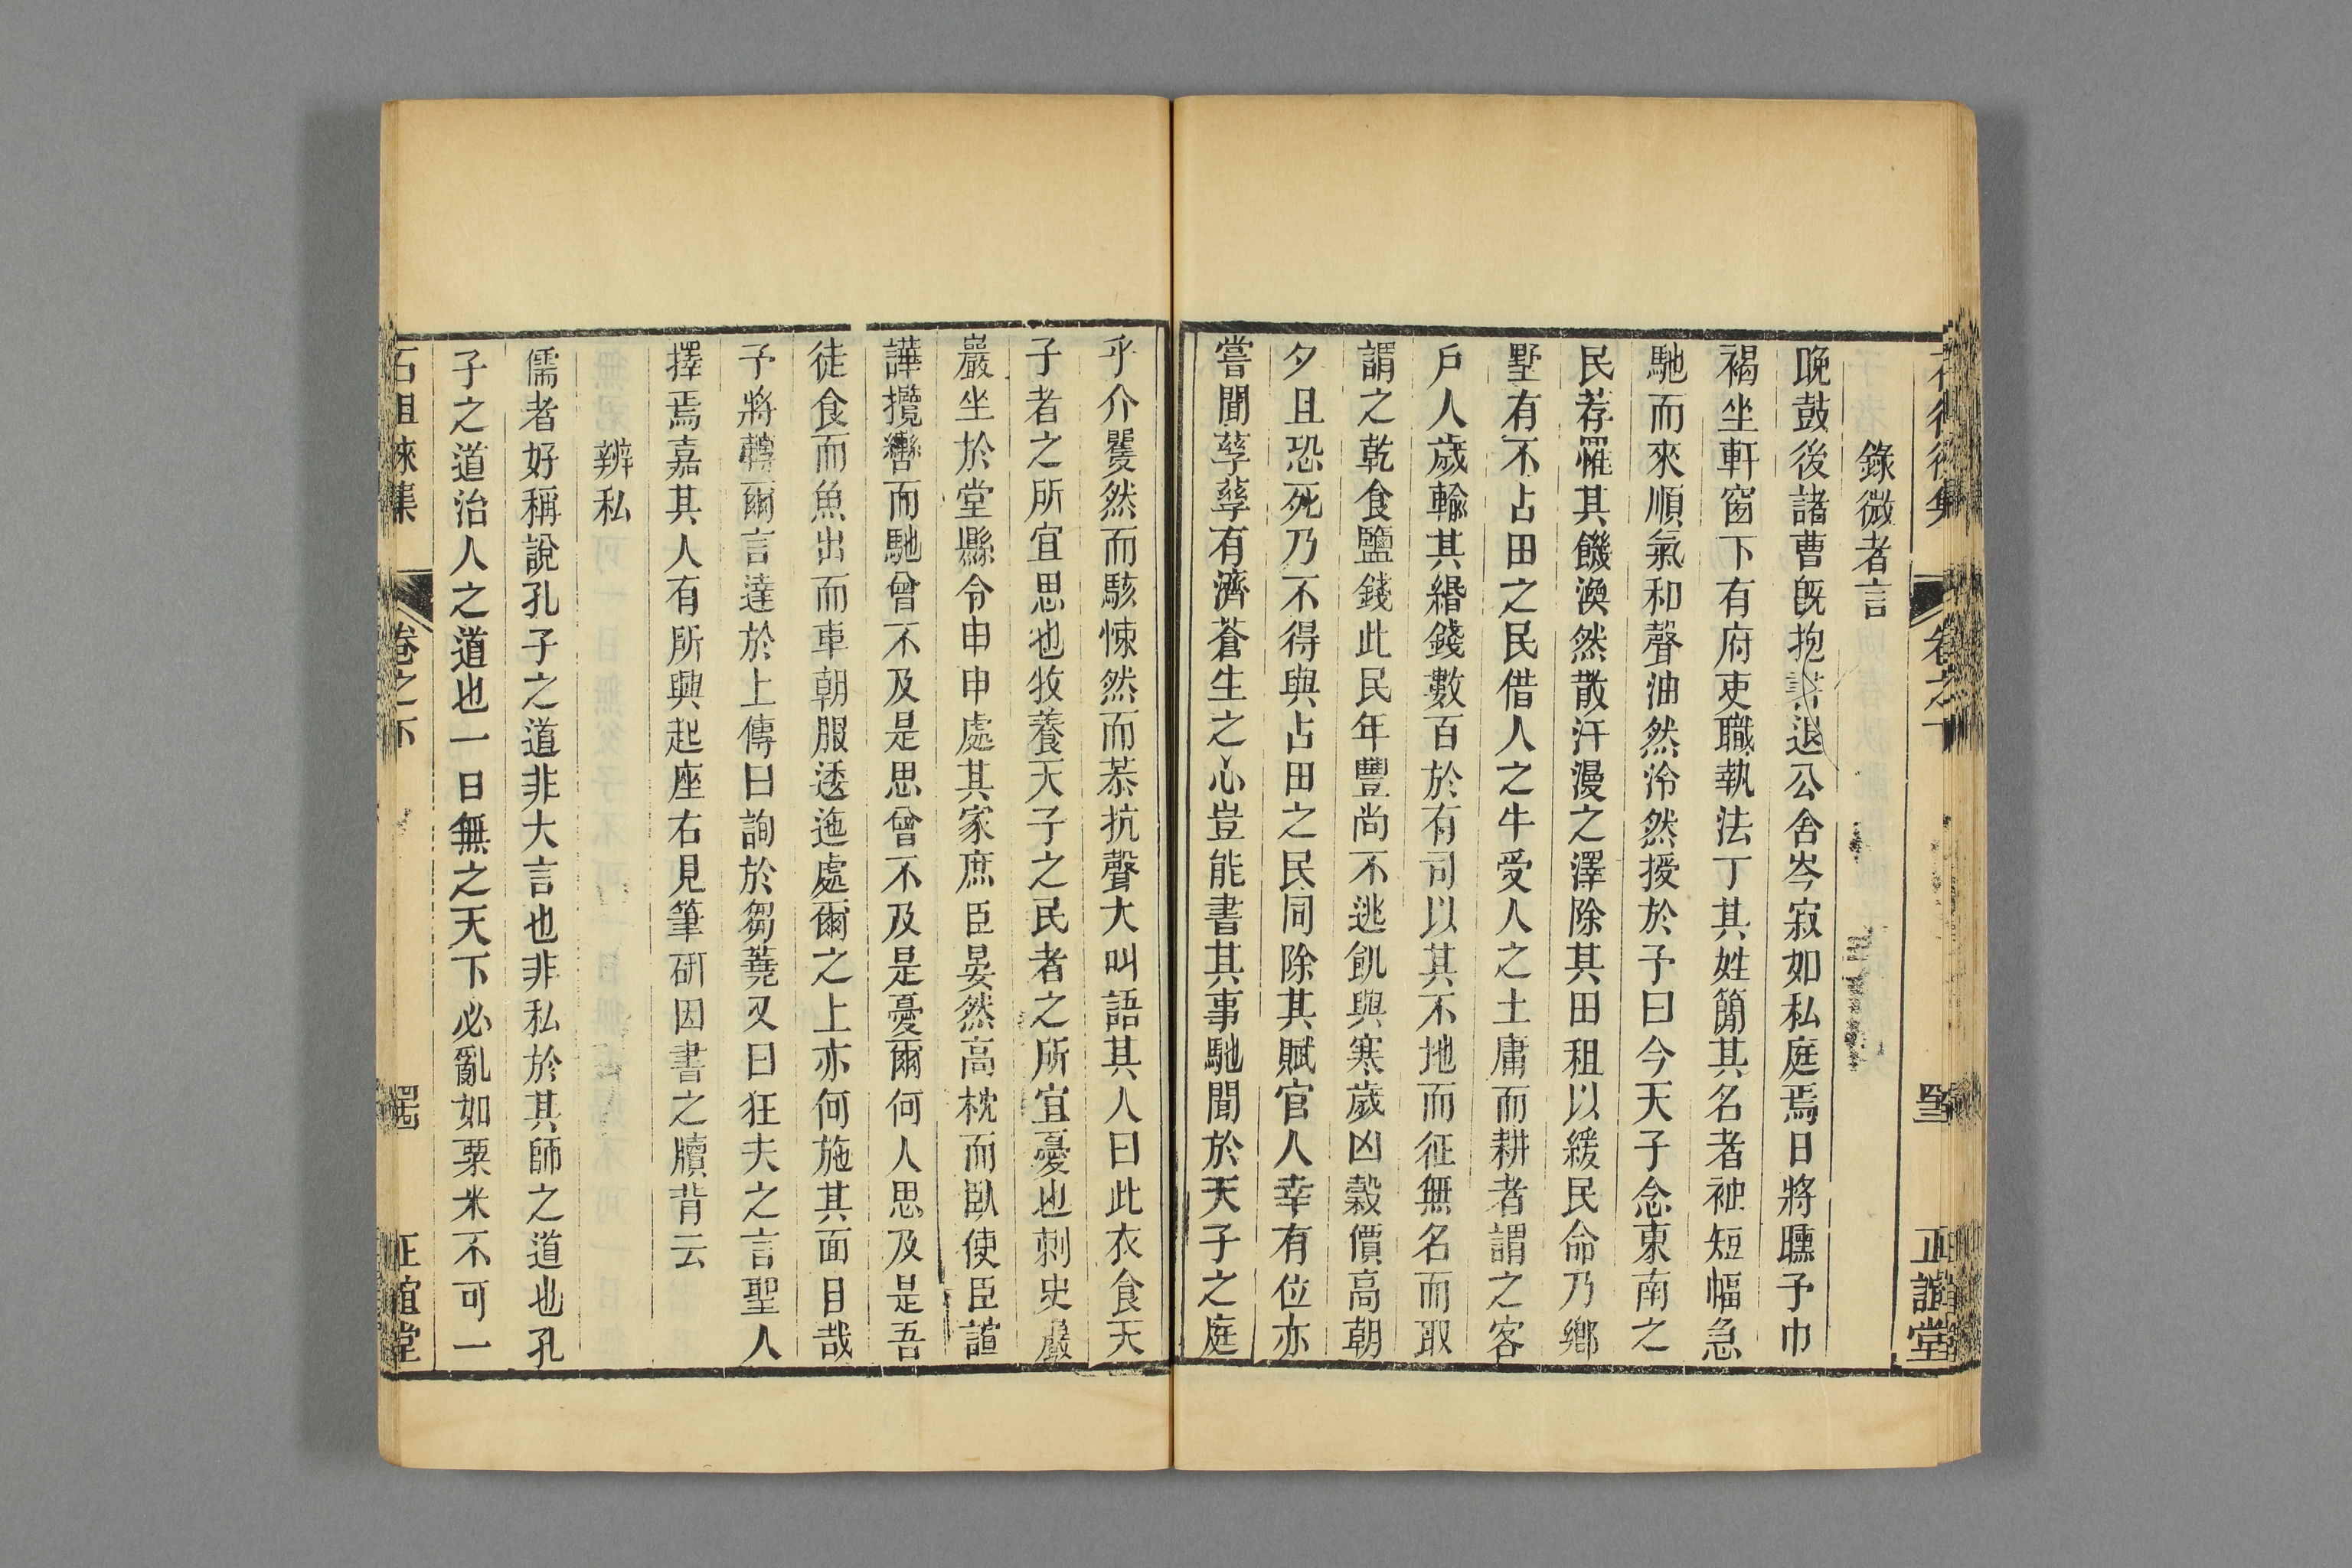 錄微者言
晚鼓後諸曹旣抱書退公舍岑寂如私庭焉日將曛予巾
褐坐軒窗下有府吏職執法丁其姓簡其名者袖短幅急
馳而來順氣和聲油然泠然援於予曰今天子念東南之
民荐罹其饑渙然散汗漫之澤除其田租以緩民命乃鄉
墅有不占田之民借人之牛受人之土庸而耕者謂之客
戶人歲輸其緡錢數百於有司以其不地而征無名而取
謂之乾食鹽錢此民年豐尚不逃飢與寒歲凶穀價高朝
夕且恐死乃不得與占田之民同除其賦官人幸有位亦
嘗聞孳孳有濟蒼生之心豈能書其事馳聞於天子之庭
乎介矍然而駭悚然而恭抗聲大叫語其人曰此衣食天
子者之所宜思也牧養天子之民者之所宜憂也刺史巖
巖坐於堂縣令申申處其家庶臣晏然高枕而臥使臣諠
譁攬轡而馳曾不及是思曾不及是憂爾何人思及是吾
徒食而魚出而車朝服逶迤處爾之上亦何施其面目哉
予將轉爾言達於上傳曰詢於芻蕘又曰狂夫之言聖人
擇焉嘉其人有所興起座右見筆硏因書之牘背云
辨私
儒者好稱說孔子之道非大言也非私於其師之道也孔
子之道治人之道也一日無之天下必亂如粟米不可一
石徂徠集
卷之下
正誼堂